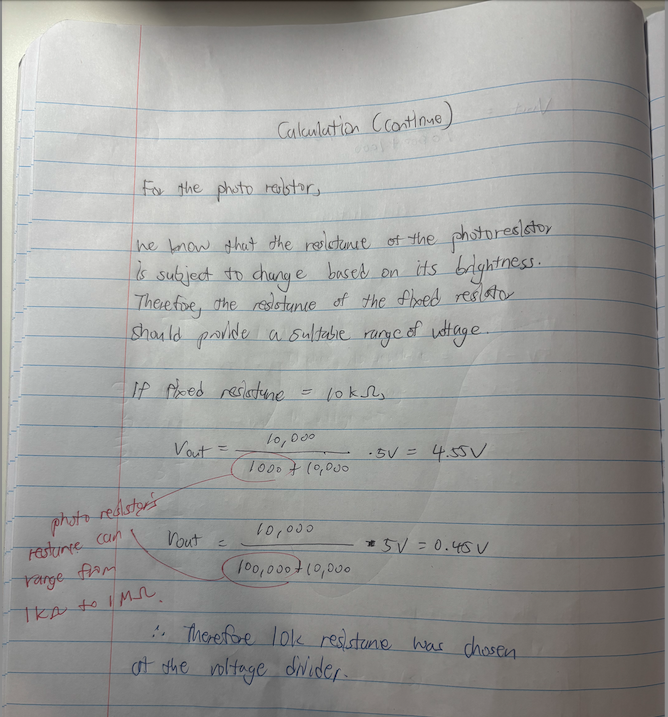 Calculation (continue)
For the photo resistor,
we know that the resistance of the photoresistor
is subject to change based on its brightness.
Therefore, the resistance of the fixed resistor
should provide a suitable range of voltage.
If fixed resistance = 10kΩ,
Vout = 10,000 / (1000 + 10,000) · 5V = 4.55V
Vout = 10,000 / (100,000 + 10,000) * 5V = 0.45V
photo resistor's
resistance can
range from
1kΩ to 1MΩ.
∴ Therefore 10k resistance was chosen
at the voltage divider.